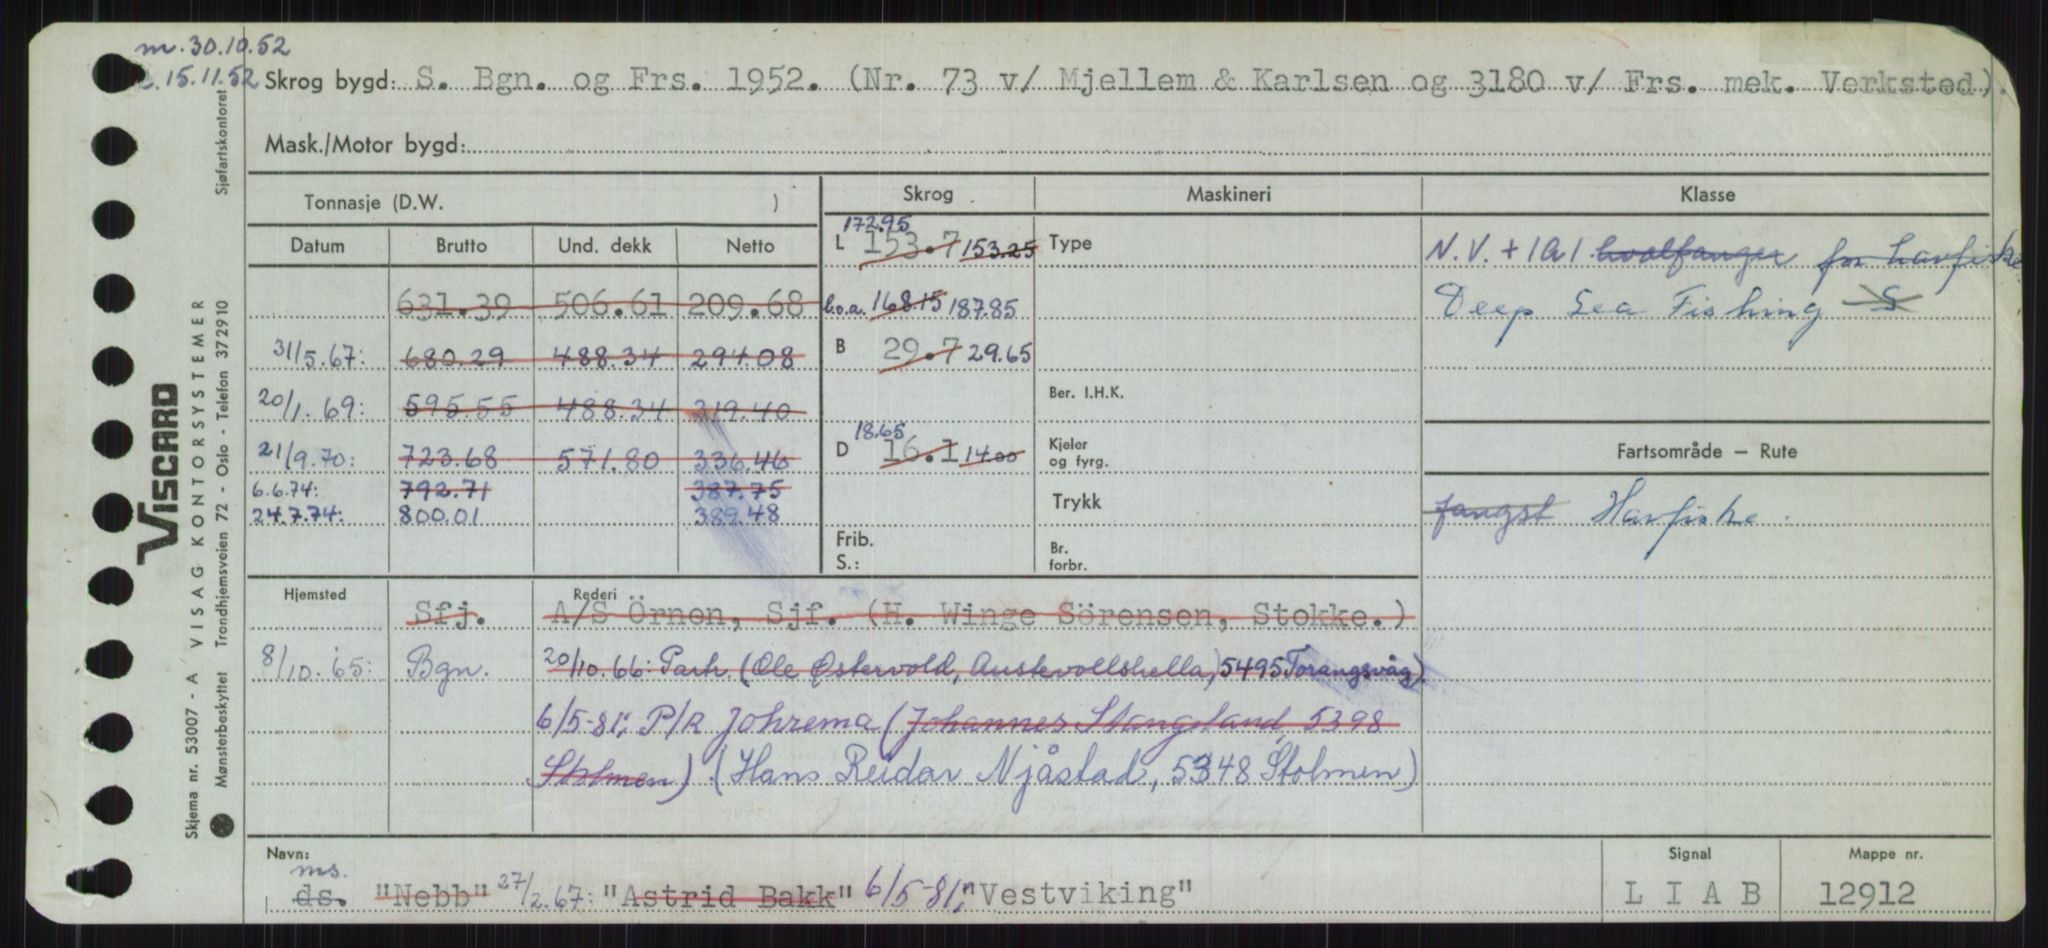 m. 30.10.52
15.11.52 Skrog bygd: S. Bgn. og Frs. 1952. (Nr. 73 v/ Mjellem & Karlsen og 3180 v/ Frs. mek. Verksted).
Mask./Motor bygd:
Tonnasje (D.W. )
Datum Brutto Und. dekk Netto
631.39 506.61 209.68
31/5.67: 680.29 488.34 294.08
20/1.69: 595.55 488.34 319.40
21/9.70: 723.68 571.80 336.46
6.6.74: 792.71 387.75
24.7.74: 800.01 389.48
Skrog
172.95
L 153.7 153.25
l.o.a. 168.15 187.85
B 29.7 29.65
18.65
D 16.1 14.00
Frib.
S.:
Maskineri
Type
Ber. I.H.K.
Kjeler
og fyrg.
Trykk
Br.
forbr.
Klasse
N.V. + 1A1 hvalfanger for havfiske
Deep Sea Fishing S
Fartsområde – Rute
fangst Havfiske.
Hjemsted Rederi
Sfj. A/S Örnen, Sjf. (H. Winge Sörensen, Stokke.)
8/10.65: Bgn. 20/10.66: Partr. (Ole Østervold, Austevollshella, 5495 Torangsvåg)
6/5-81: P/R Johrema (Johannes Stangeland, 5398
Stolmen) (Hans Reidar Njåstad, 5348 Stolmen)
Navn:
ms.
ds. "Nebb" 27/2.67: "Astrid Bakk" 6/5-81: "Vestviking"
Signal
L I A B
Mappe nr.
12912
VISCARD
Skjema nr. 53007 - A VISAG KONTORSYSTEMER
Mønsterbeskyttet Trondhjemsveien 72 - Oslo - Telefon 372910
Sjøfartskontoret